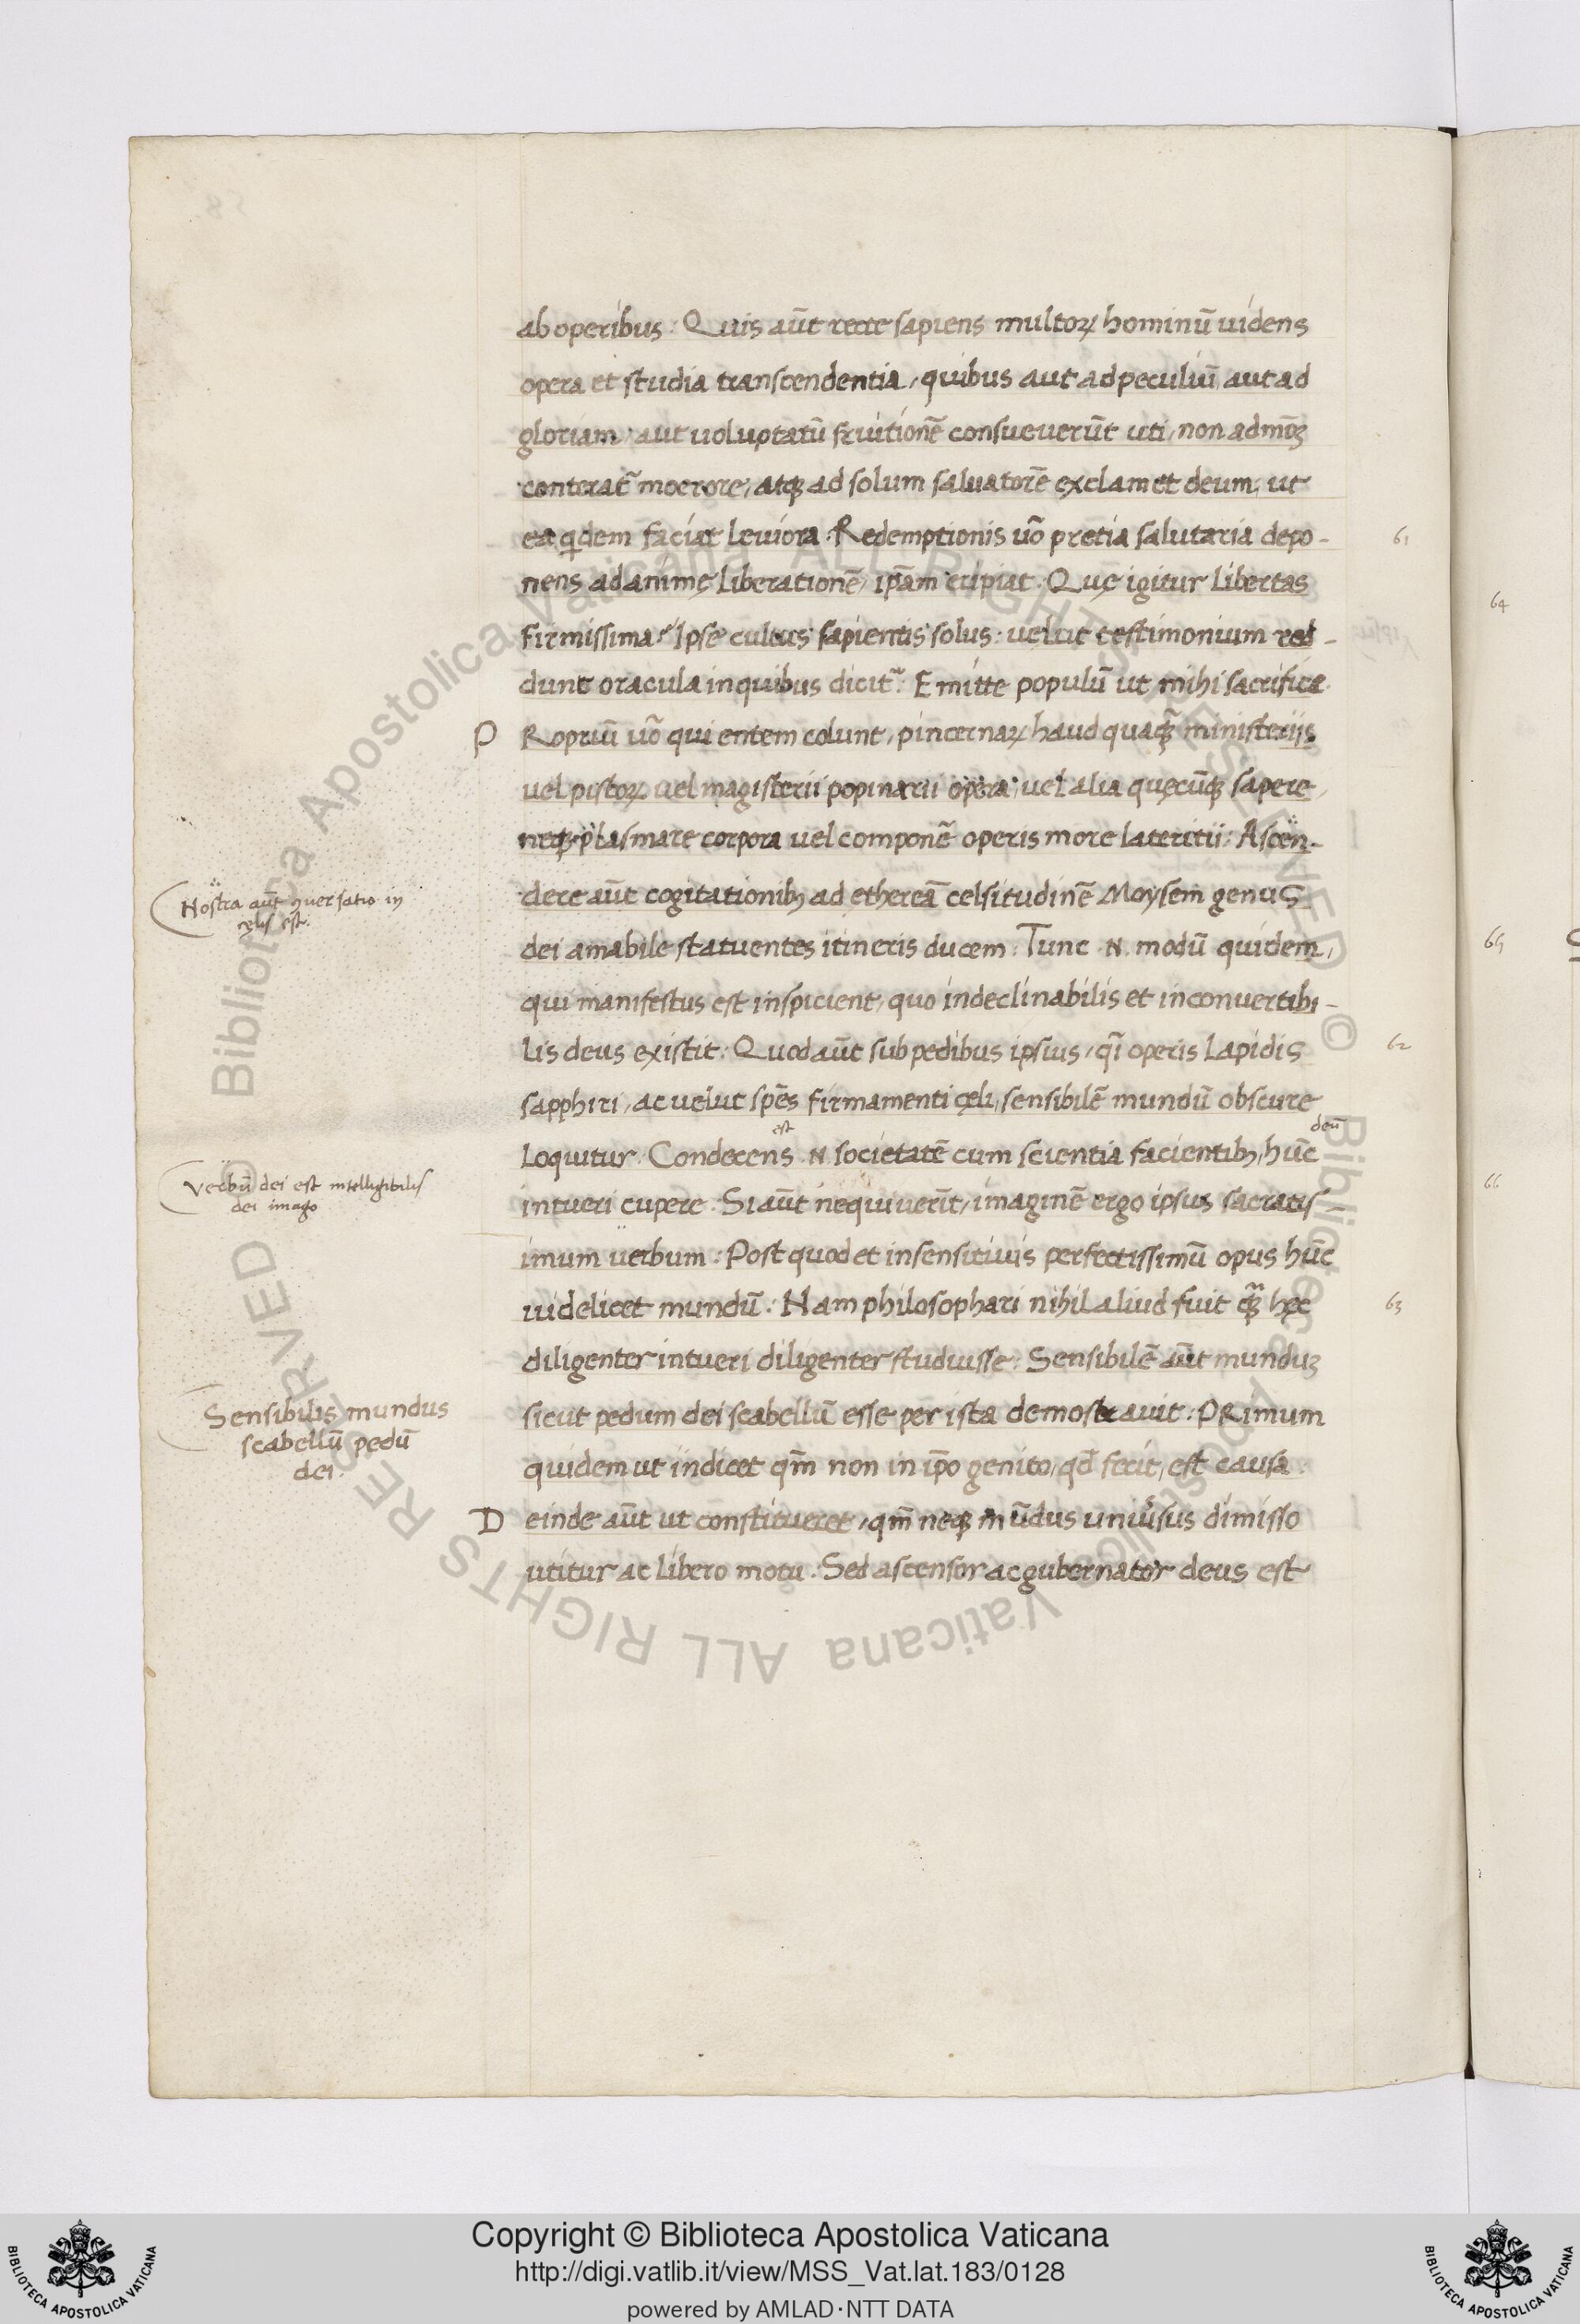 ab operibus : Quis aūt recte sapiens multoꝝ hominū uidens
opera et studia transcendentia, quibus aut ad peculiū aut ad
gloriam, aut uoluptatū fruitionē consueuerūt uti, non admōꝫ
conterat᷑ moerore, atqꝫ ad solum saluatorē exclamet deum, ut
ea qͥdem faciat leuiora : Redemptionis uo᷑ pretia salutaria depo-
nens ad animę liberationē, ip̄am eripiat . Quę igitur libertas
firmissima? Ipse cultus sapientis solus : uelut testimonium red-
dunt oracula in quibus dicit᷑ : Emitte populū ut mihi sacrifice.
P Ropriū uo᷑ qui entem colunt, pincernaꝝ haud quaqꝫ̄ ministeriis
uel pistoꝝ uel magisterii popinarii opera, uel alia quęcūqꝫ sapere,
neqꝫ plasmare corpora uel componē operis more lateritii : Ascen-
dere aūt cogitationibꝫ ad ethereā celsitudinē Moysem genus
dei amabile statuentes itineris ducem : Tunc .N. modū quidem,
qui manifestus est inspicient, quo indeclinabilis et inconuertibi-
lis deus existit : Quod aūt sub pedibus ipsius, qͣi operis lapidis
sapphiri, ac uelut spēs firmamenti cęli, sensibilē mundū obscure
Loquitur . Condecens est .N. societatē cum scientia facientibꝫ, hūc deū
intueri cupere : Si aūt nequiuerīt, imaginē ergo ipsius sacratis-
imum uerbum : Post quod et in sensitiuis perfectissimū opus hūc
uidelicet mundū : Nam philosophari nihil aliud fuit qꝫ̄ hęc
diligenter intueri diligenter studuisse : Sensibilē aūt munduꝫ
sicut pedum dei scabellū esse per ista demostrauit : PRimum
quidem ut indicet qm̄ non in ip̄o genito, qd̄ fecit, est causa :
D einde aūt ut constitueret, qm̄ neqꝫ mūdus uniūsus dimisso
utitur ac libero motu : Sed ascensor ac gubernator deus est
Nostra aūt ꝯuersatio in
cęlis est.
Verbū dei est intelligibilis
dei imago
Sensibilis mundus
scabellū pedū
dei.
61
62
63
64
65
66
Copyright © Biblioteca Apostolica Vaticana
http://digi.vatlib.it/view/MSS_Vat.lat.183/0128
powered by AMLAD·NTT DATA
BIBLIOTECA APOSTOLICA VATICANA
BIBLIOTECA APOSTOLICA VATICANA